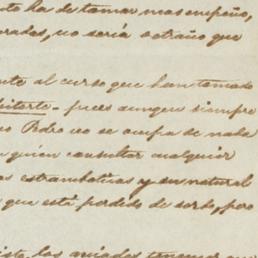 ste ha de tomar mas empeño,
orados, no sería estraño que
nte al curso que han tomado
bitorte - pues aunque siempre
o Pedro no se ocupa de nada
quien consultar cualquier
as estrambóticas y su natural
que está perdido de sordo, pero
los criados